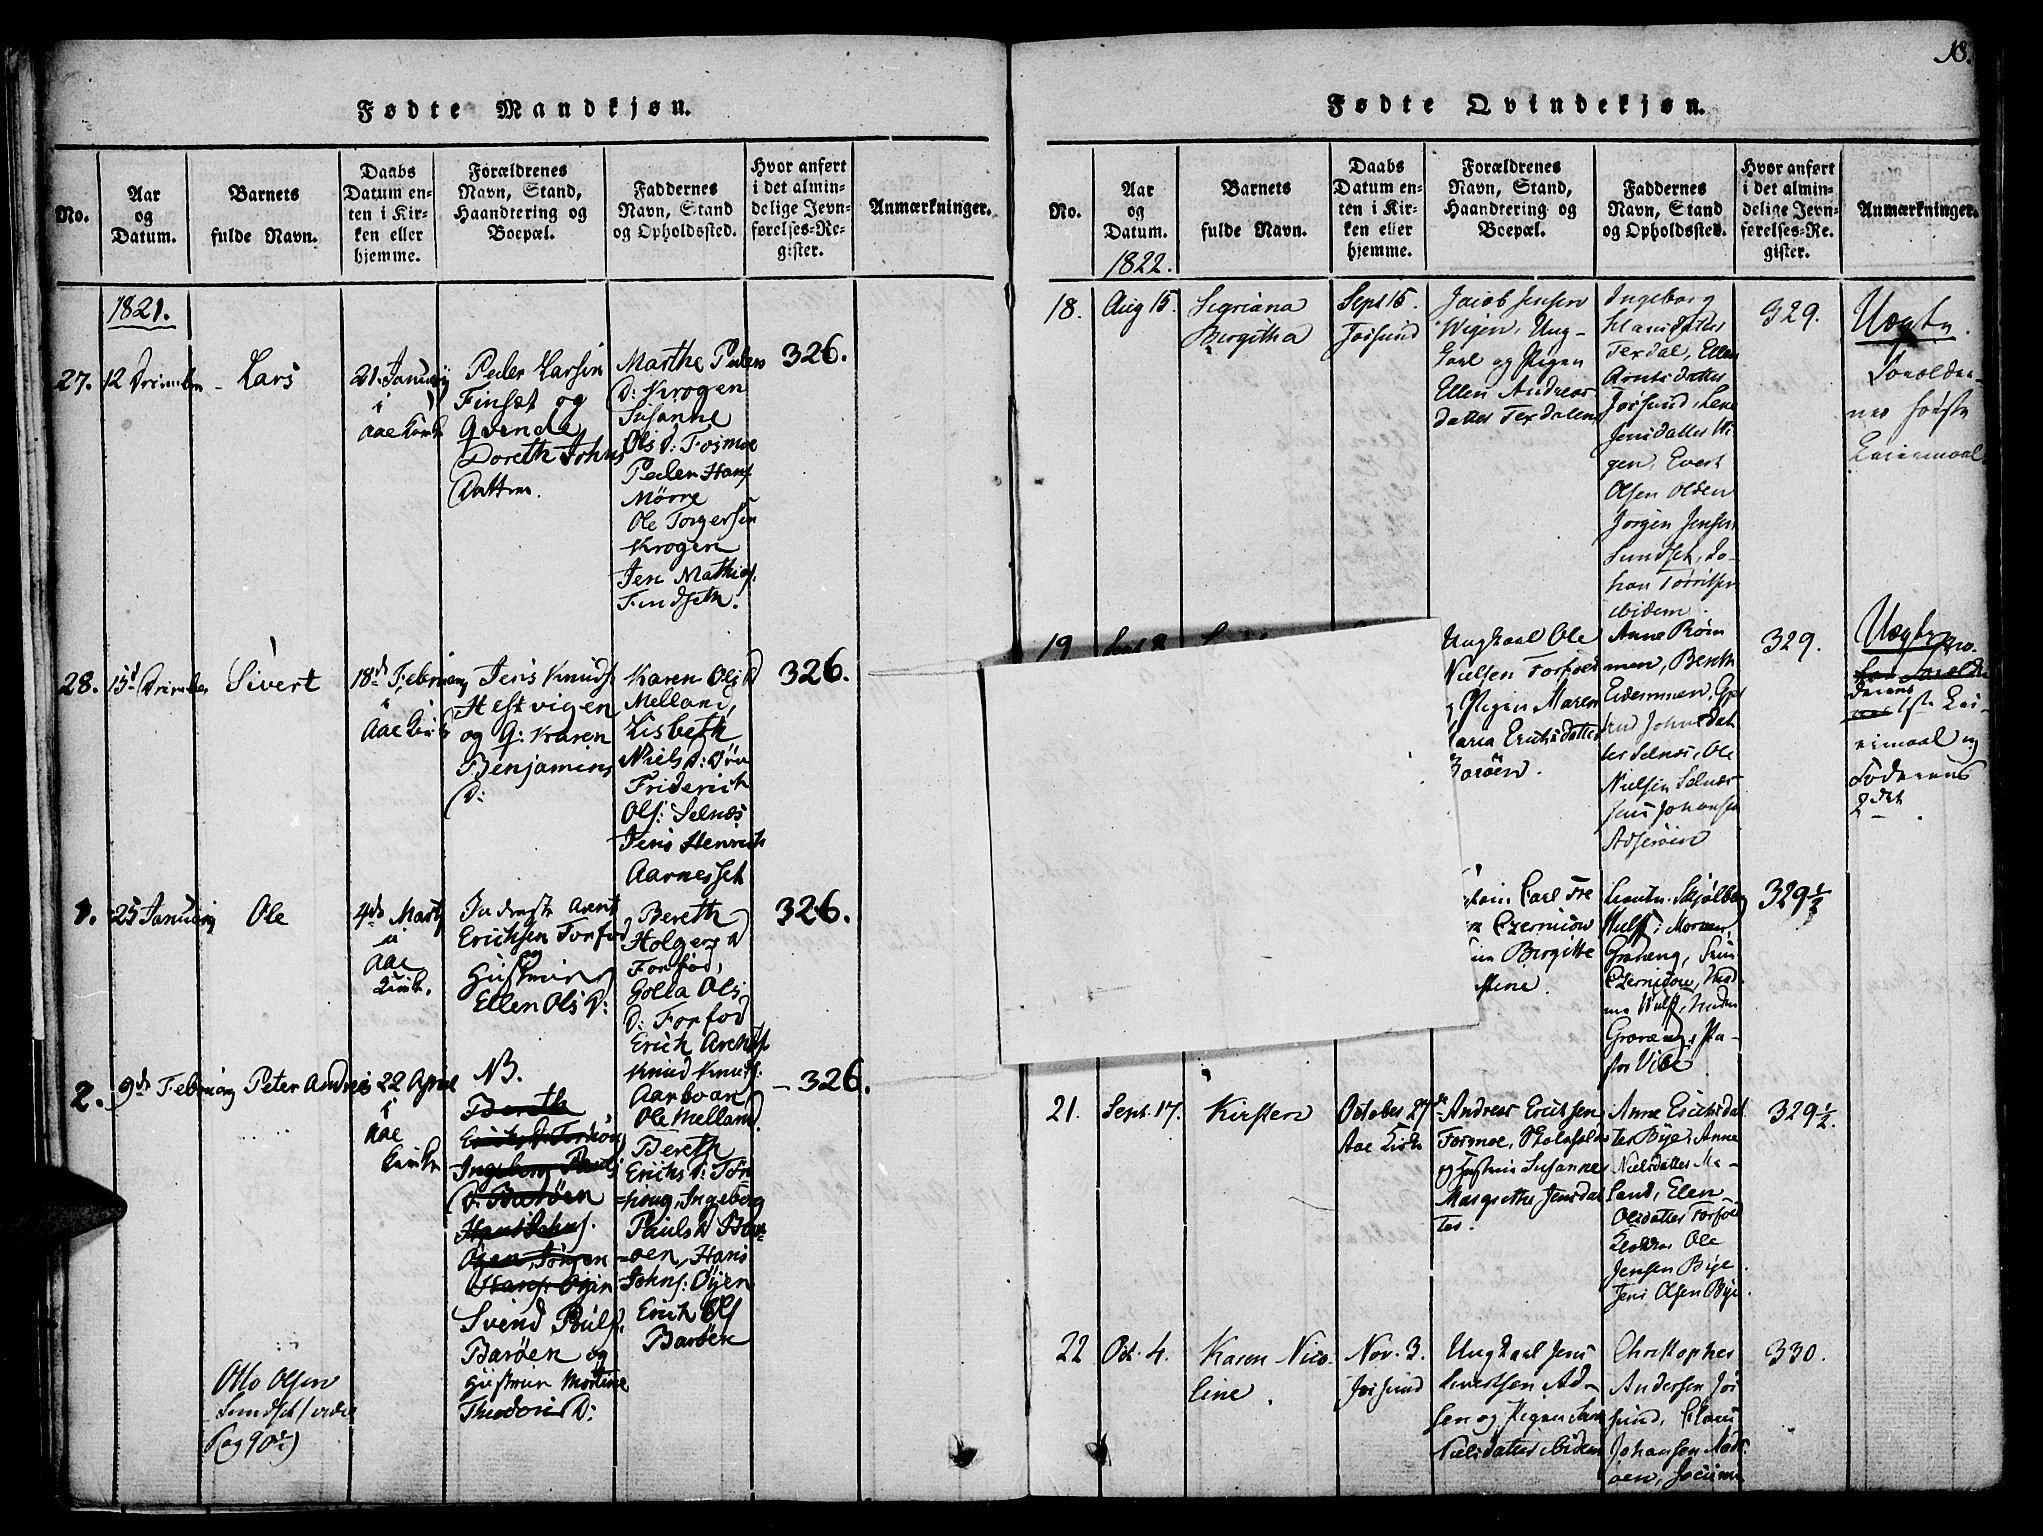 18.
Fødte Mandkjøn.
No.
Aar
og
Datum.
Barnets
fulde Navn.
Daabs
Datum en-
ten i Kir-
ken eller
hjemme.
Forældrenes
Navn, Stand,
Haandtering og
Boepæl.
Faddernes
Navn, Stand
og Opholdssted.
Hvor anført
i det almin-
delige Jevn-
førelses-Re-
gister.
Anmærkninger.
1821.
27.
12 December
Lars
21 January
i
Aae Kirk
Peder Larsen
Finset og
Qvinde
Doreth Johns
Datter.
Marthe Peders
D: Krogen
Susanne
Ols D: Fosmoe
Peder Hans
Mørre
Ole Torgersen
Krogen
Jen Mathias
Findseth.
326.
28.
15d December
Sivert
18de February
i
Aae Kirk
Jens Knuds
Hestvigen
og Q: Karen
Benjamins
D:
Karen Ols D
Melland,
Lisbeth
Niels D:
Friderich
Ols: Selnæs
Jens Henrich
Aarnesset
326.
1.
25 January
Ole
4de Marty
i
Aae
Kirk.
Arent
Erichsen Forfod
og
Hustrue
Ellen Ols D:
Bereth
Holgers D
Forfod,
Golla Ols
D: Forfod
Erich Arents
Knud Knuts:
Aarboan
Ole Melland
326.
2.
9de February
Peter Andreas
22 April
i
Aae
Kirk
NB.
Bereth
Erichs D: Forhoug
Ingeborg Pauls
D: Barøen
Hans Johns.
Øyen, Jørgen
Hans: Øyen
Svend Pouls.
Barøen og
Hustrue Martine
Theodori D:
Bereth
Erichs D: For-
houg, Ingeborg
Pauls D Bar-
øen, Hans
Johns: Øyen
Erich Ols
Barøen
326.
Otto Olsen
Sundset (vide
Pag 90)
Fødte Qvindekjøn.
No.
Aar
og
Datum.
1822.
Barnets
fulde Navn.
Daabs
Datum en-
ten i Kir-
ken eller
hjemme.
Forældrenes
Navn, Stand,
Haandtering og
Boepæl.
Faddernes
Navn, Stand
og Opholdssted.
Hvor anført
i det almin-
delige Jevn-
førelses-Re-
gister.
Anmærkninger.
18.
Aug 15.
Segriana
Birgitha
Sept 15.
Jøssund
Jacob Jensen
Wigen, Ung-
karl og Pigen
Ellen Andreas
datter Terdalen
Ingeborg
Hansdatter
Terdal, Ellen
Arntsdatter
Jøssund, Lene
Jensdatter Wi-
gen, Evert
Olsen Olden
Jørgen Jensen
Sundset, Jo-
han
ibidem.
329.
Uægte.
Forældre-
nes første
Leiermaal.
19
Sept 8
Ungkarl Ole
Nielsen Forfod
og Pigen Maren
Maria Erichsdatter
Barøen.
Anne Røm
men, Bereth
Eidemmen,
Johnsdat
ter Selnæs, Ole
Nielsen Selnæs
Jens Johansen
329.
Uægte
1ste Lei-
ermaal og
Faderens
2det
Carl Fre
Czernicow
Birgitte
stine.
Skjølberg
Wulff, Morren,
Graneng,
Czernicow,
Wulff,
Graneng, Pa-
stor Vibe
329 1/2
21.
Sept. 17.
Kirsten
October 27de
Aae Kirke
Andreas Erichsen
Formoe, Skoleholder
og Hustrue Susanne
Margrethe Jensdat
ter.
Anne Erichsdat
ter Bye, Anne
Nielsdatter Me-
land, Elen
Olsdatter Forfod
Ole
Jensen Bye
Jens Olsen Bye.
329 1/2.
22
Oct. 4.
Karen Nico-
line.
Nov. 3.
Jøssund
Ungkarl Jens
Evertsen Ad-
sen og Pigen
Nielsdatter ibidem
Christopher
Andersen Jøs
sund, Claus
Johansen Nød-
øen,
330.